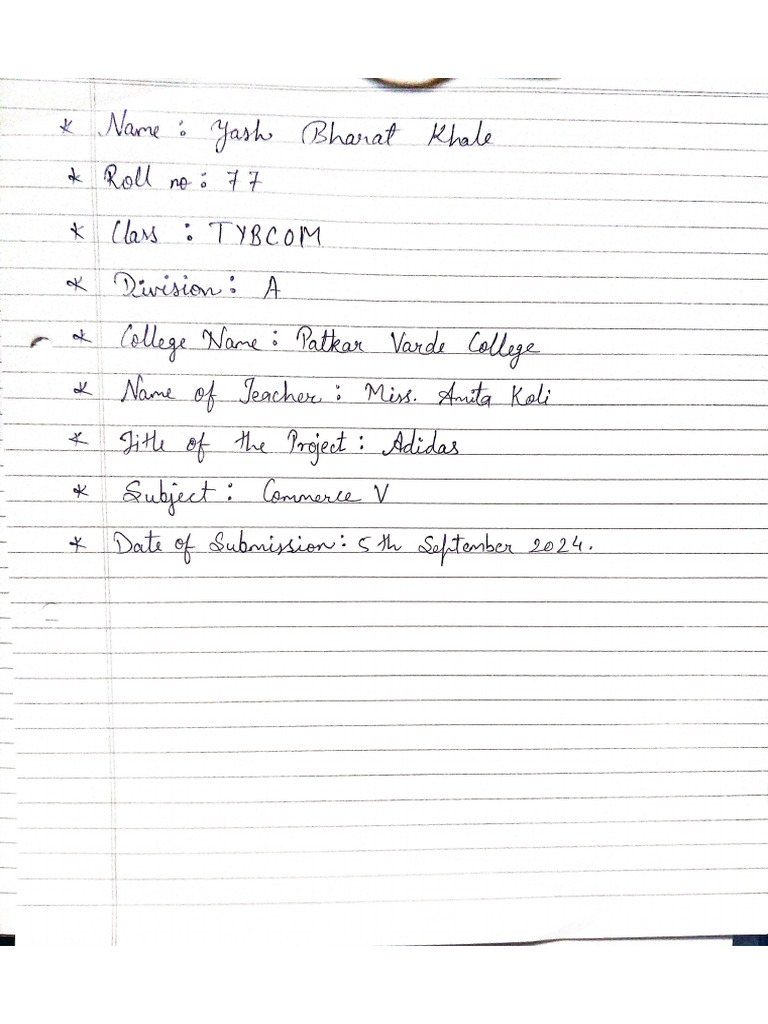 * Name : Yash Bharat Khale
* Roll no : 77
* Class : TYBCOM
* Division : A
* College Name : Patkar Varde College
* Name of Teacher : Miss. Amita Koli
* Title of the Project : Adidas
* Subject : Commerce V
* Date of Submission : 5th September 2024.